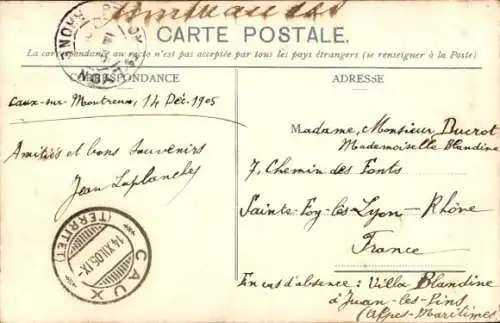 CARTE POSTALE.
La correspondance au recto n'est pas acceptée par tous les pays étrangers (se renseigner à la Poste)
CORRESPONDANCE
ADRESSE
Caux-sur-Montreux, 14 Déc. 1905
Amitiés et bons souvenirs
Jean Laplanche
Madame, Monsieur Ducrot
Mademoiselle Blandine
7, Chemin des Fonts
Sainte-Foy-lès-Lyon - Rhône
France
En cas d'absence : Villa Blandine
à Juan-les-Pins
(Alpes-Maritimes
CAUX
(TERRITET)
14.XII.05.IX-
RHONE